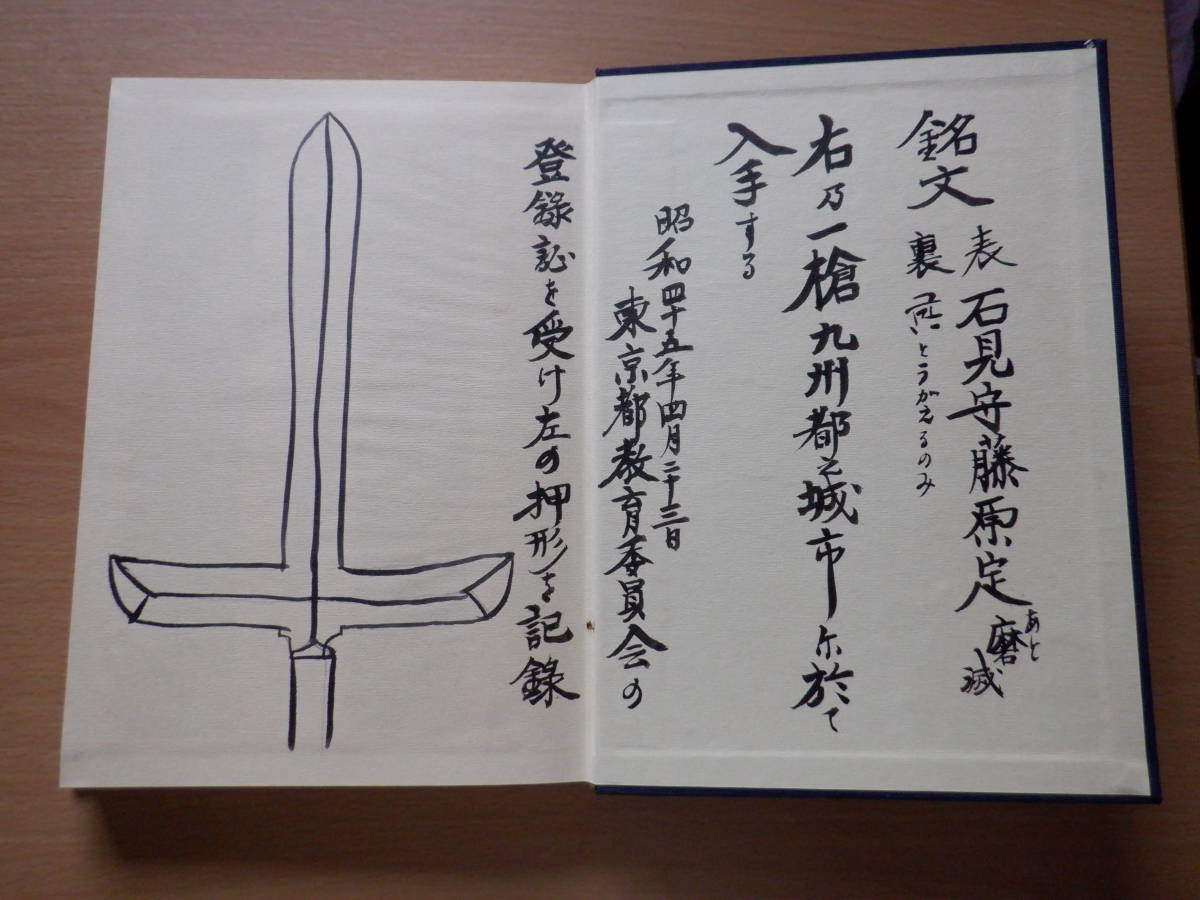 銘文
表 石見守藤原定 あと磨滅
裏 とうかえるのみ
右乃一槍九州都之城市尓於て
入手する
昭和四十五年四月二十三日
東京都教育委員会の
登録証を受け左の押形を記録